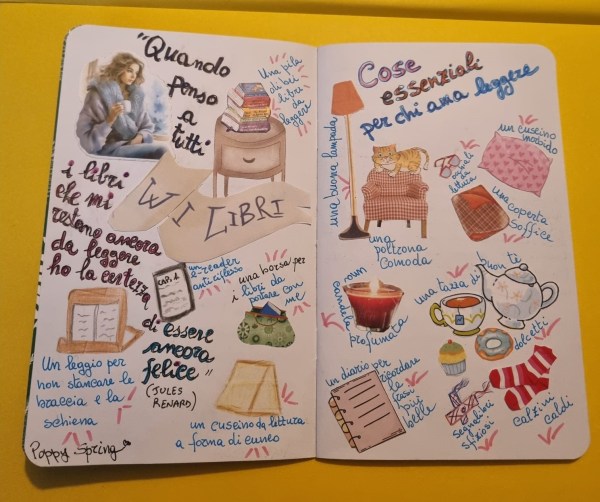 "Quando
penso
a
tutti
i libri
che mi
restano ancora
da leggere
ho la certezza
di essere
ancora
felice"
(JULES
RENARD)
Una pila
di bei
libri
da
leggere
W I LIBRI
un
e-reader
antiriflesso
CAP. 1
una borsa per
i libri da
portare con
me
Un leggio per
non stancare le
braccia e la
schiena
un cuscino da lettura
a forma di cuneo
Poppy Spring
Cose
essenziali
per chi ama leggere
una buona lampada
una
poltrona
comoda
occhiali
da
lettura
un cuscino
morbido
una coperta
soffice
una
candela
profumata
una tazza di buon tè
dolcetti
un diario per ricordare
le
frasi
più
belle
segnalibri
sfiziosi
calzini
caldi